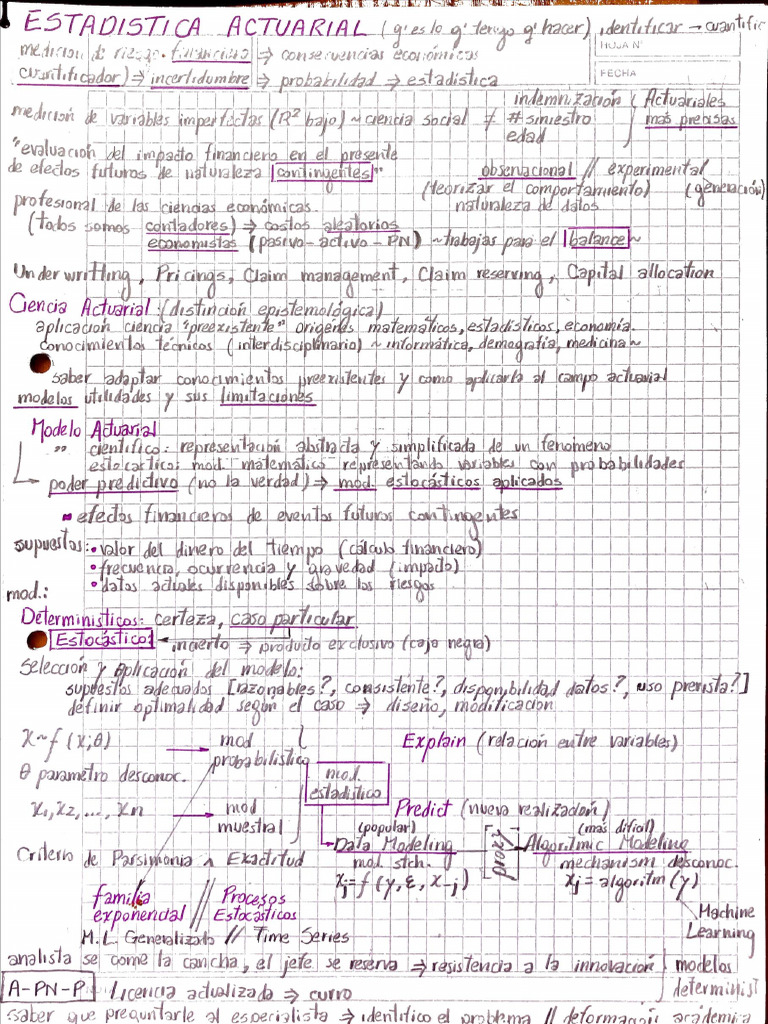 ESTADISTICA ACTUARIAL (q' es lo q' tengo q' hacer) identificar → cuantific
HOJA N°
medicion de riesgo financiero ⇒ consecuencias económicas
FECHA
cuantificador) ⇒ incertidumbre ⇒ probabilidad ⇒ estadistica
medición de variables imperfectas (R² bajo) ~ ciencia social ≠ indemnización # siniestro edad } Actuariales más precisas
"evaluación del impacto financiero en el presente
de efectos futuros de naturaleza contingentes"
observacional // experimental
(teorizar el comportamiento) (generación)
naturaleza de datos
profesional de las ciencias económicas.
(todos somos contadores) ⇒ costos aleatorios
economistas (pasivo-activo-PN) ~trabajas para el balance~
Under writting, Pricings, Claim management, Claim reserving, Capital allocation
Ciencia Actuarial: (distinción epistemológica)
aplicación ciencia "preexistente" origenes matemáticos, estadísticos, economía.
conocimientos técnicos (interdisciplinario) ~ informática, demografia, medicina~
saber adaptar conocimientos preexistentes y como aplicarla al campo actuarial
modelos utilidades y sus limitaciones
Modelo Actuarial
" cientifico: representación abstracta y simplificada de un fenomeno
estocástico: mod. matemático representando variables con probabilidades
poder predictivo (no la verdad) ⇒ mod. estocásticos aplicados
efectos financieros de eventos futuros contingentes
supuestos: • valor del dinero del tiempo (cálculo financiero)
• frecuencia, ocurrencia y gravedad (impacto)
• datos actuales disponibles sobre los riesgos
mod.:
Deterministicos: certeza, caso particular
Estocástico: incierto ⇒ producto exclusivo (caja negra)
Selección y aplicación del modelo:
supuestos adecuados [razonables?, consistente?, disponibilidad datos?, uso prevista?]
definir optimalidad según el caso ⇒ diseño, modificación
x~f(x;θ) → mod probabilistico
Explain (relación entre variables)
θ parametro desconoc.
mod. estadistico
x₁, x₂, ..., xₙ → mod muestral
Predict (nueva realización)
(popular) (más dificil)
Data Modeling [proxy] Algoritmic Modeling
Criterio de Parsimonia ∧ Exactitud
mod. stch. mechanism desconoc.
xⱼ = f(y, ε, x₋ⱼ) xⱼ = algoritm(y)
familia exponencial // Procesos Estocásticos
Machine Learning
M.L. Generalizado // Time Series
analista se come la cancha, el jefe se reserva ⇒ resistencia a la innovación } modelos determinist
A-PN-P Licencia actualizada ⇒ curro
saber que preguntarle al especialista ⇒ identifico el problema // deformación académica